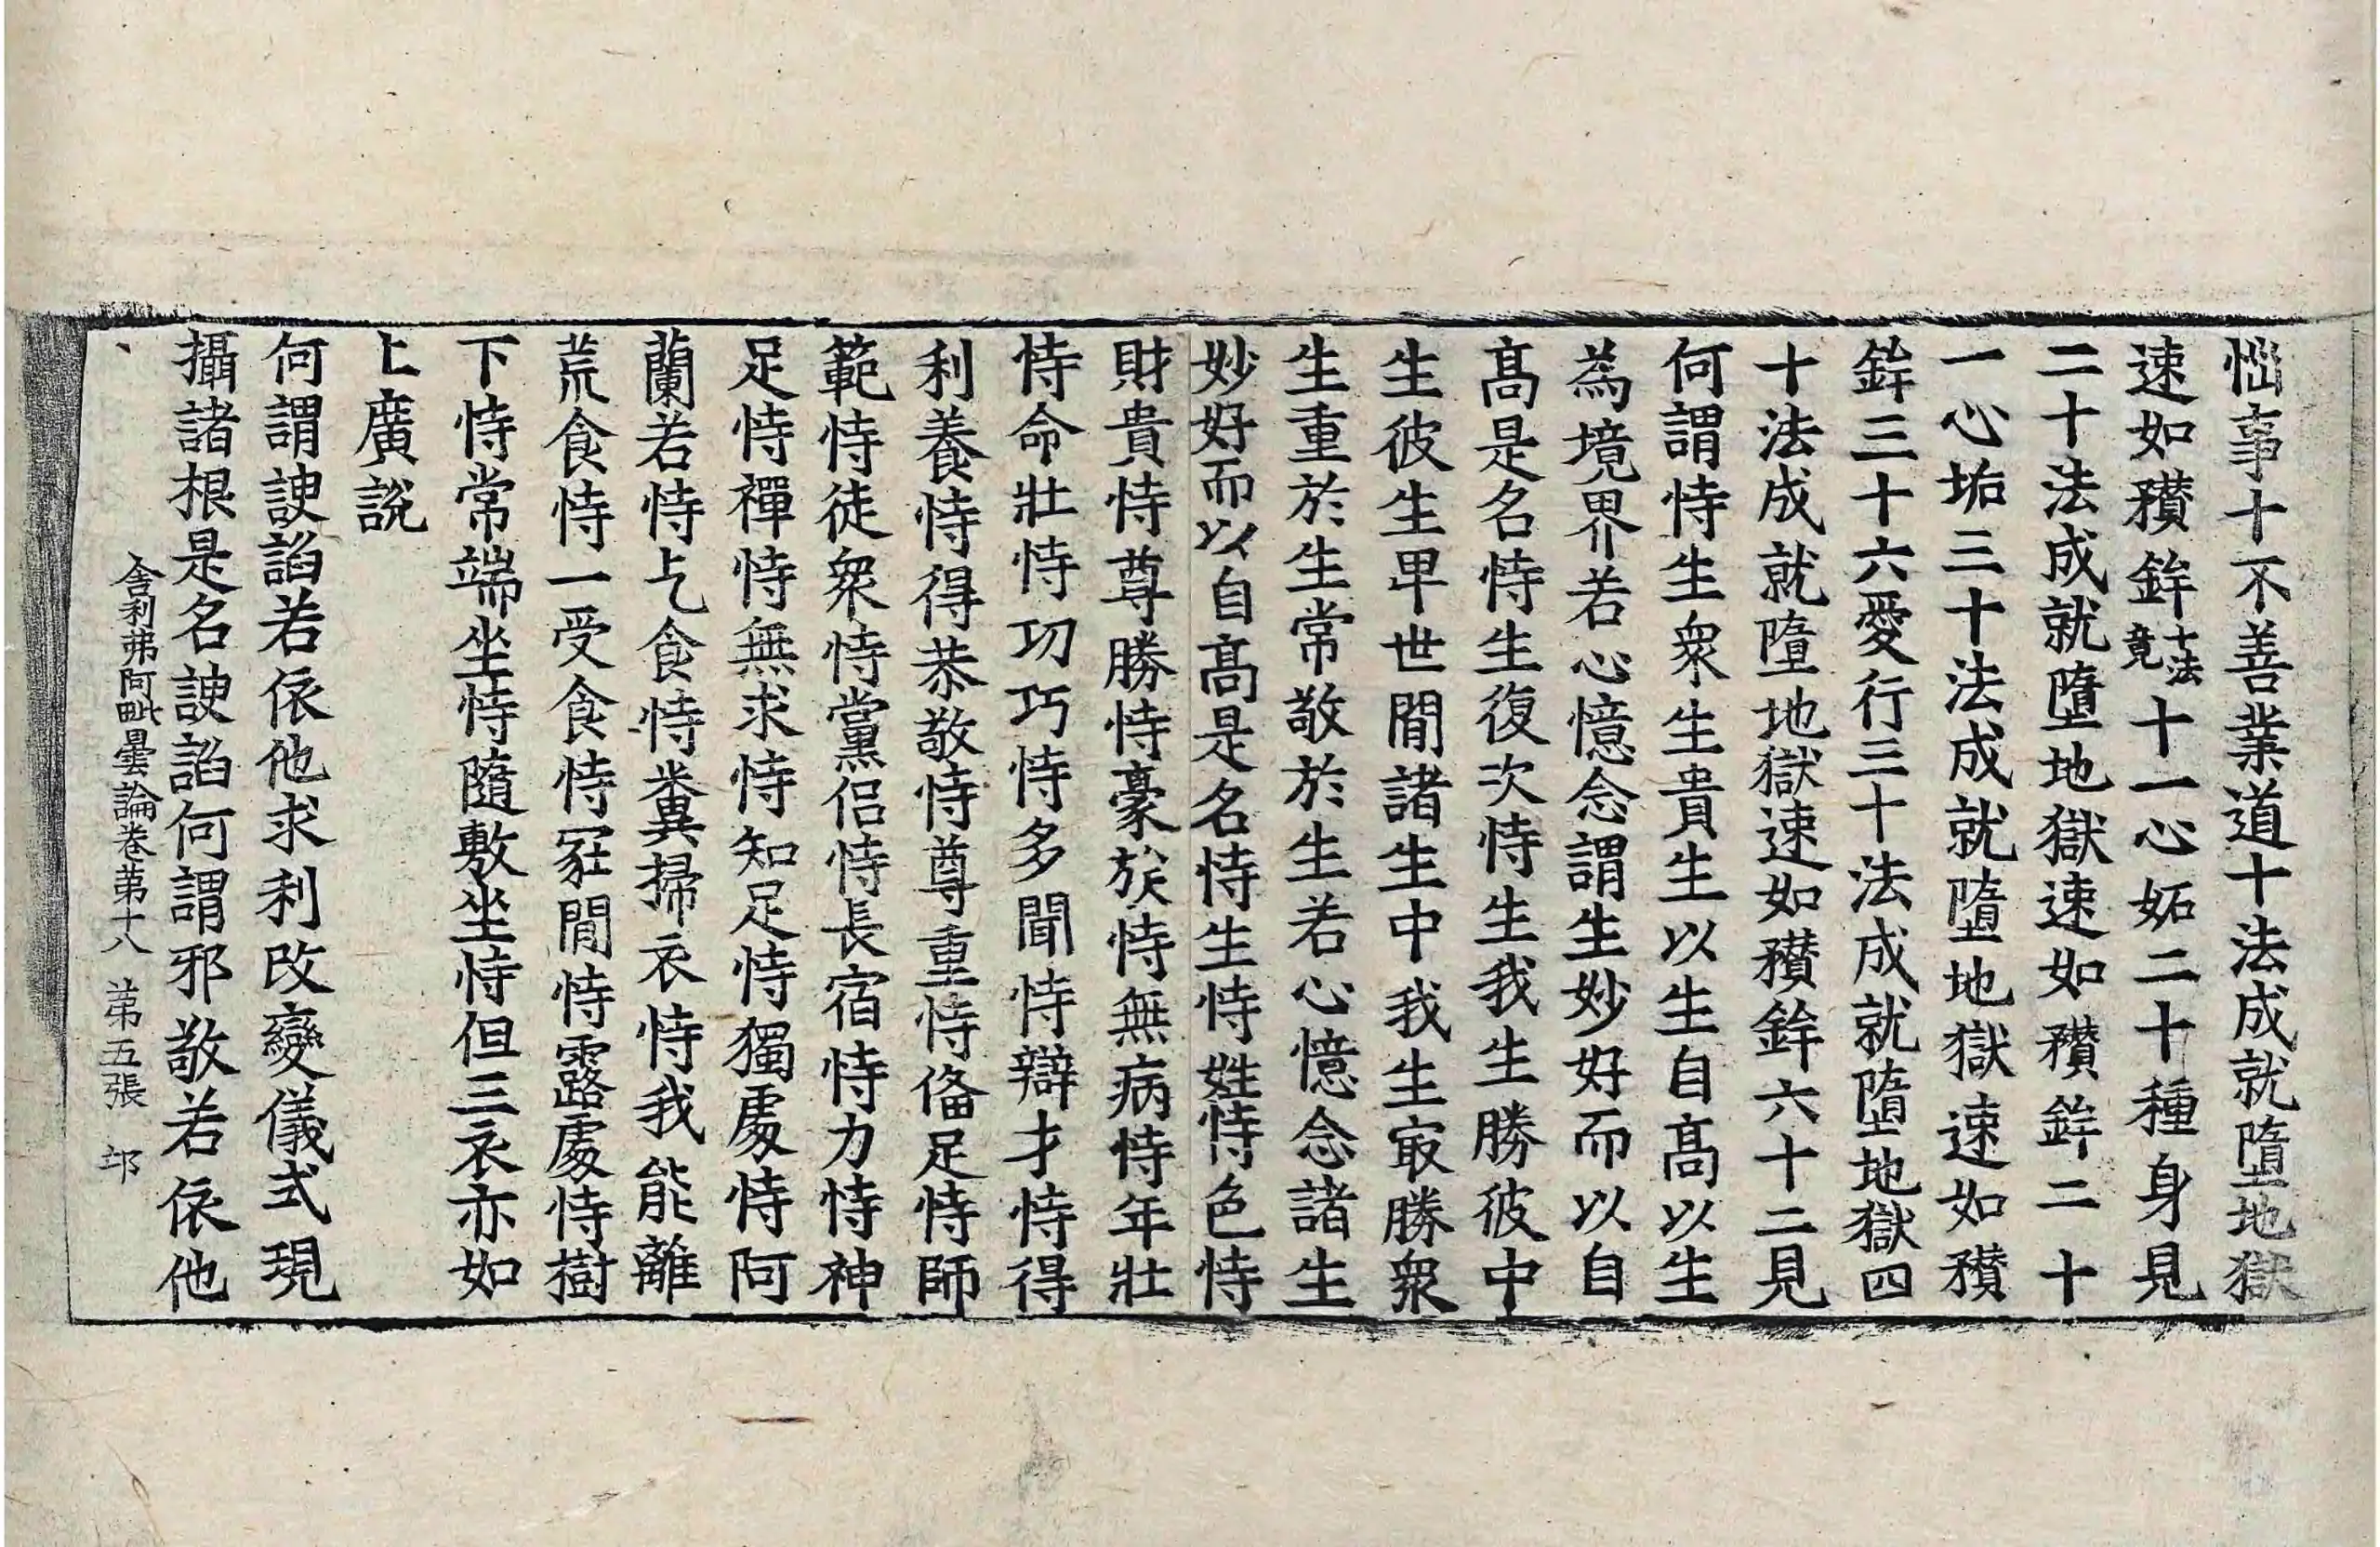 惱事十不善業道十法成就墮地獄
速如䂎鉾十法竟十一心妬二十種身見
二十法成就墮地獄速如䂎鉾二十
一心垢三十法成就墮地獄速如䂎
鉾三十六愛行三十法成就墮地獄四
十法成就墮地獄速如䂎鉾六十二見
何謂恃生衆生貴生以生自髙以生
為境界若心憶念謂生妙好而以自
髙是名恃生復次恃生我生勝彼中
生彼生卑世閒諸生中我生冣勝衆
生重於生常敬於生若心憶念諸生
妙好而以自髙是名恃生恃姓恃色恃
財貴恃尊勝恃豪族恃無病恃年壯
恃命壯恃㓛巧恃多聞恃辯才恃得
利養恃得恭敬恃尊重恃俻足恃師
範恃徒衆恃黨侣恃長宿恃力恃神
足恃禪恃無求恃知足恃獨處恃阿
蘭若恃乞食恃糞掃衣恃我能離
荒食恃一受食恃冢閒恃露處恃樹
下恃常端坐恃隨敷坐恃但三衣亦如
上廣說
何謂諛諂若依他求利改變儀式現
攝諸根是名諛諂何謂邪敬若依他
舍利弗阿毗曇論卷第十八 第五張 邙